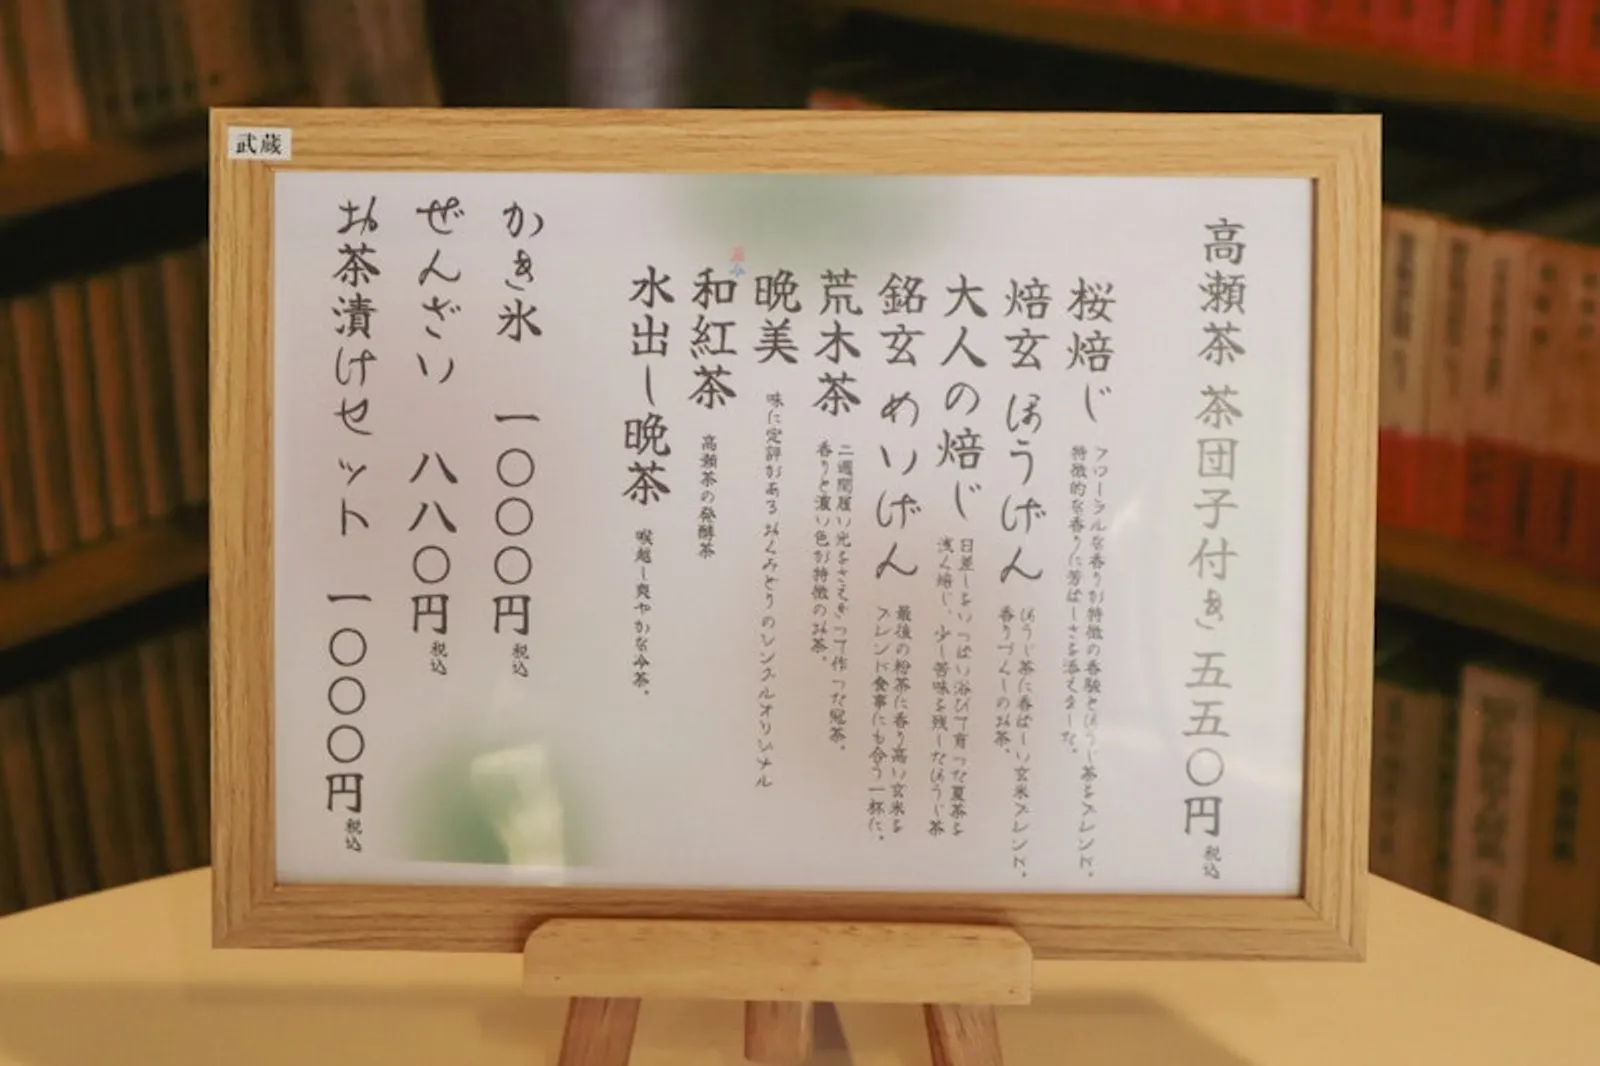 武蔵
高瀬茶 茶団子付き 五五〇円 税込
桜焙じ
フローラルな香りが特徴の春駿とほうじ茶をブレンド。
特徴的な香りに芳ばしさを添えました。
焙玄 ほうげん
ほうじ茶に香ばしい玄米ブレンド。
香りづくしのお茶。
大人の焙じ
日差しをいっぱい浴びて育った夏茶を
浅く焙じ、少し苦味を残したほうじ茶
銘玄 めいげん
最後の粉茶に香り高い玄米を
ブレンド食事にも合う一杯に。
荒木茶
二週間履い光をさえぎって作った冠茶。
香りと濃い色が特徴のお茶。
晩美
味に定評がある おくみどりのシングルオリジナル
和紅茶
高瀬茶の発酵茶
水出し晩茶
喉越し爽やかな冷茶。
かき氷 一〇〇〇円 税込
ぜんざい 八八〇円 税込
お茶漬けセット 一〇〇〇円 税込